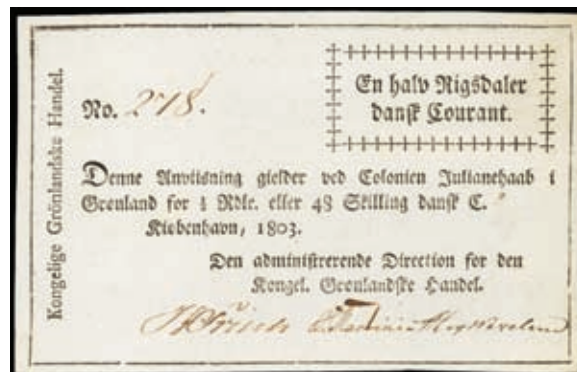 Kongelige Grönlandske Handel.
No. 278.
En halv Rigsdaler
dansk Courant.
Denne Anviisning gielder ved Colonien Julianehaab i
Grønland for ½ Rdlr. eller 48 Skilling dansk C.
Kiøbenhavn, 1803.
Den administrerende Direction for den
Kongel. Grønlandske Handel.